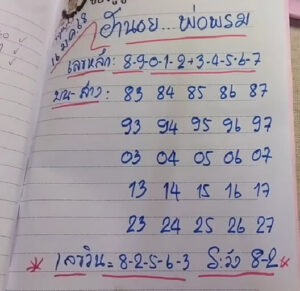 16 ม.ค. 68
ฮานอย...พ่อพรม
เลขหลัก: 8-9-0-1-2+3-4-5-6-7
บน-ล่าง: 83 84 85 86 87
93 94 95 96 97
03 04 05 06 07
13 14 15 16 17
23 24 25 26 27
* เลขวิน = 8-2-5-6-3 ระวัง 8-2 *